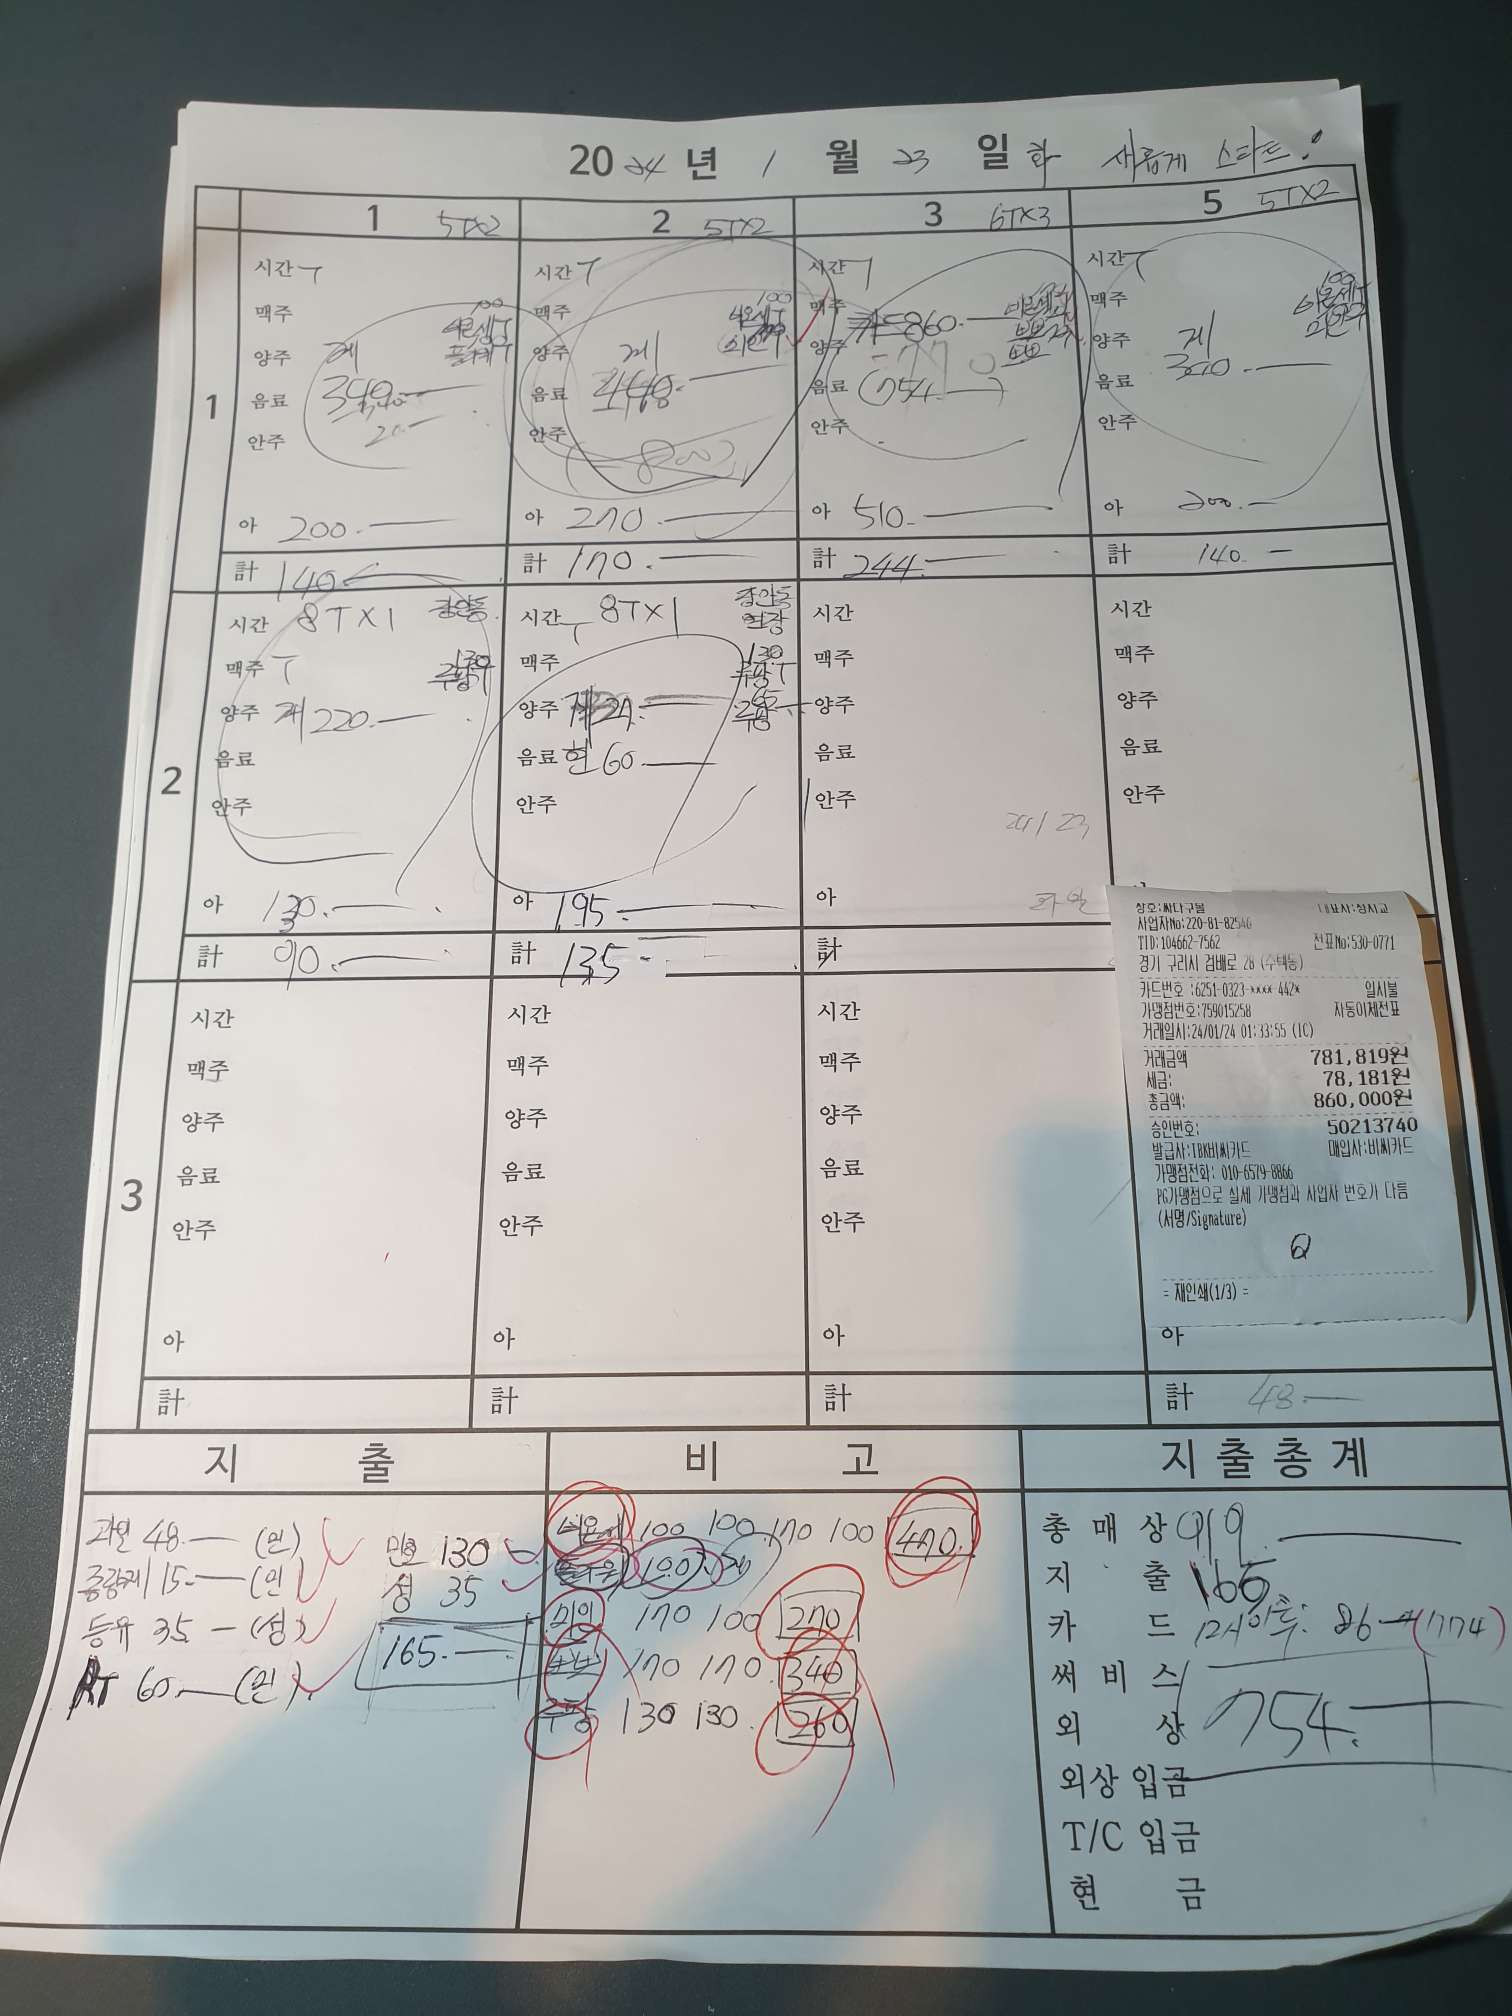 2024 년 1 월 23 일 화 새롭게 스타트!
1 5TX2
2 5TX2
3 6TX3
5 5TX2
1
시간 T
맥주 100
양주 계
음료 340.-
안주 20.-
아 200.-
計 140.-
시간 T
맥주 100
양주 계
음료 440.-
안주
아 270.-
計 170.-
시간 T
맥주
양주 카드 860.-
음료 (754.-)
안주
아 510.-
計 244.-
시간 T
맥주 100
양주 계
음료 340.-
안주
아 200.-
計 140.-
2
시간 8TX1 장안동
맥주 T 130
양주 계 220.-
음료
안주
아 130.-
計 90.-
시간 T 8TX1 장안동
맥주 130
양주 계 27.-
음료 현 60.-
안주
아 195.-
計 135.-
시간
맥주
양주
음료
안주
아
計
시간
맥주
양주
음료
안주
24 1 23
화일
상호:싸다구몰
사업자No:220-81-82546
TID:104662-7562 전표No:530-0771
경기 구리시 검배로 28 (수택동)
카드번호 :6251-0323-****-442* 일시불
가맹점번호:759015258 자동이체전표
거래일시:24/01/24 01:33:55 (IC)
거래금액 781,819원
세금: 78,181원
총금액: 860,000원
승인번호: 50213740
발급사:IBK비씨카드 매입사:비씨카드
가맹점전화: 010-6579-8866
PG가맹점으로 실제 가맹점과 사업자 번호가 다름
(서명/Signature)
= 재인쇄(1/3) =
3
시간
맥주
양주
음료
안주
아
計
시간
맥주
양주
음료
안주
아
計
시간
맥주
양주
음료
안주
아
計
아
計 48.-
지 출
과일 48.- (민)
종량제 15.- (민)
등유 35.- (성)
RT 60.- (민)
민호 130
성 35
165.-
비 고
100 100 170 100 470
100
미인 170 100 270
뽀뽀 170 170 340
주황 130 130 260
지출총계
총 매 상 919.-
지 출 165
카 드 12시이후: 86 (774)
써 비 스
외 상 754.-
외상 입금
T/C 입금
현 금